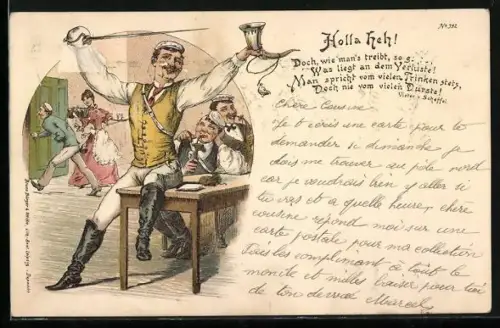 No 392
Holla Heh!
Doch, wie man's treibt, so g
Was liegt an dem Verluste!
Man spricht vom vielen Trinken stets,
Doch nie vom vielen Durste!
Victor v. Scheffel
Chère cousine
Je t'écris une carte pour te
demander si dimanche je
dois me trouver au pôle nord
car je voudrais bien y aller si
tu vas et a quelle heure, chère
cousine répond moi sur une
carte postale pour ma collection
Tous les compliment à tout le
monde et milles baiser pour toi
de ton Marcel